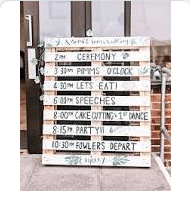 2PM CEREMONY
3:30PM PIMMS O'CLOCK
4:30PM LETS EAT!
6:00PM SPEECHES
8:00PM CAKE CUTTING + 1ST DANCE
8:15PM PARTY!!
10:30PM FOWLERS DEPART